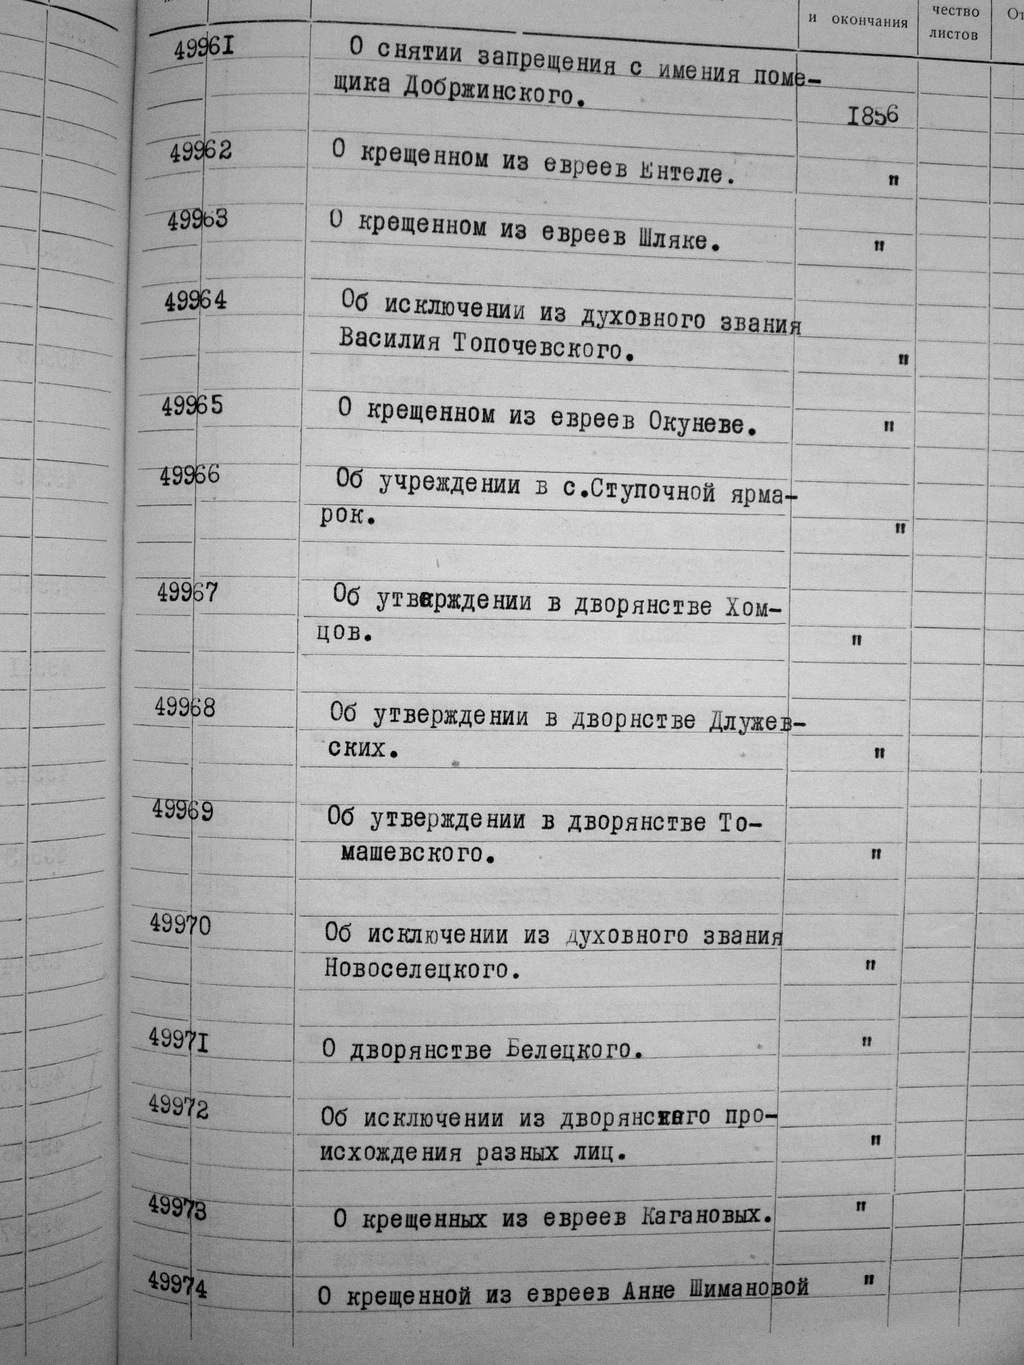 и окончания
чество
листов
От
49961 О снятии запрещения с имения поме-
щика Добржинского.
1856
49962 О крещенном из евреев Ентеле. "
49963 О крещенном из евреев Шляке. "
49964 Об исключении из духовного звания
Василия Топочевского. "
49965 О крещенном из евреев Окуневе. "
49966 Об учреждении в с.Ступочной ярма-
рок. "
49967 Об утверждении в дворянстве Хом-
цов. "
49968 Об утверждении в дворнстве Длужев-
ских. "
49969 Об утверждении в дворянстве То-
машевского. "
49970 Об исключении из духовного звания
Новоселецкого. "
49971 О дворянстве Белецкого. "
49972 Об исключении из дворянского про-
исхождения разных лиц. "
49973 О крещенных из евреев Кагановых. "
49974 О крещенной из евреев Анне Шимановой "